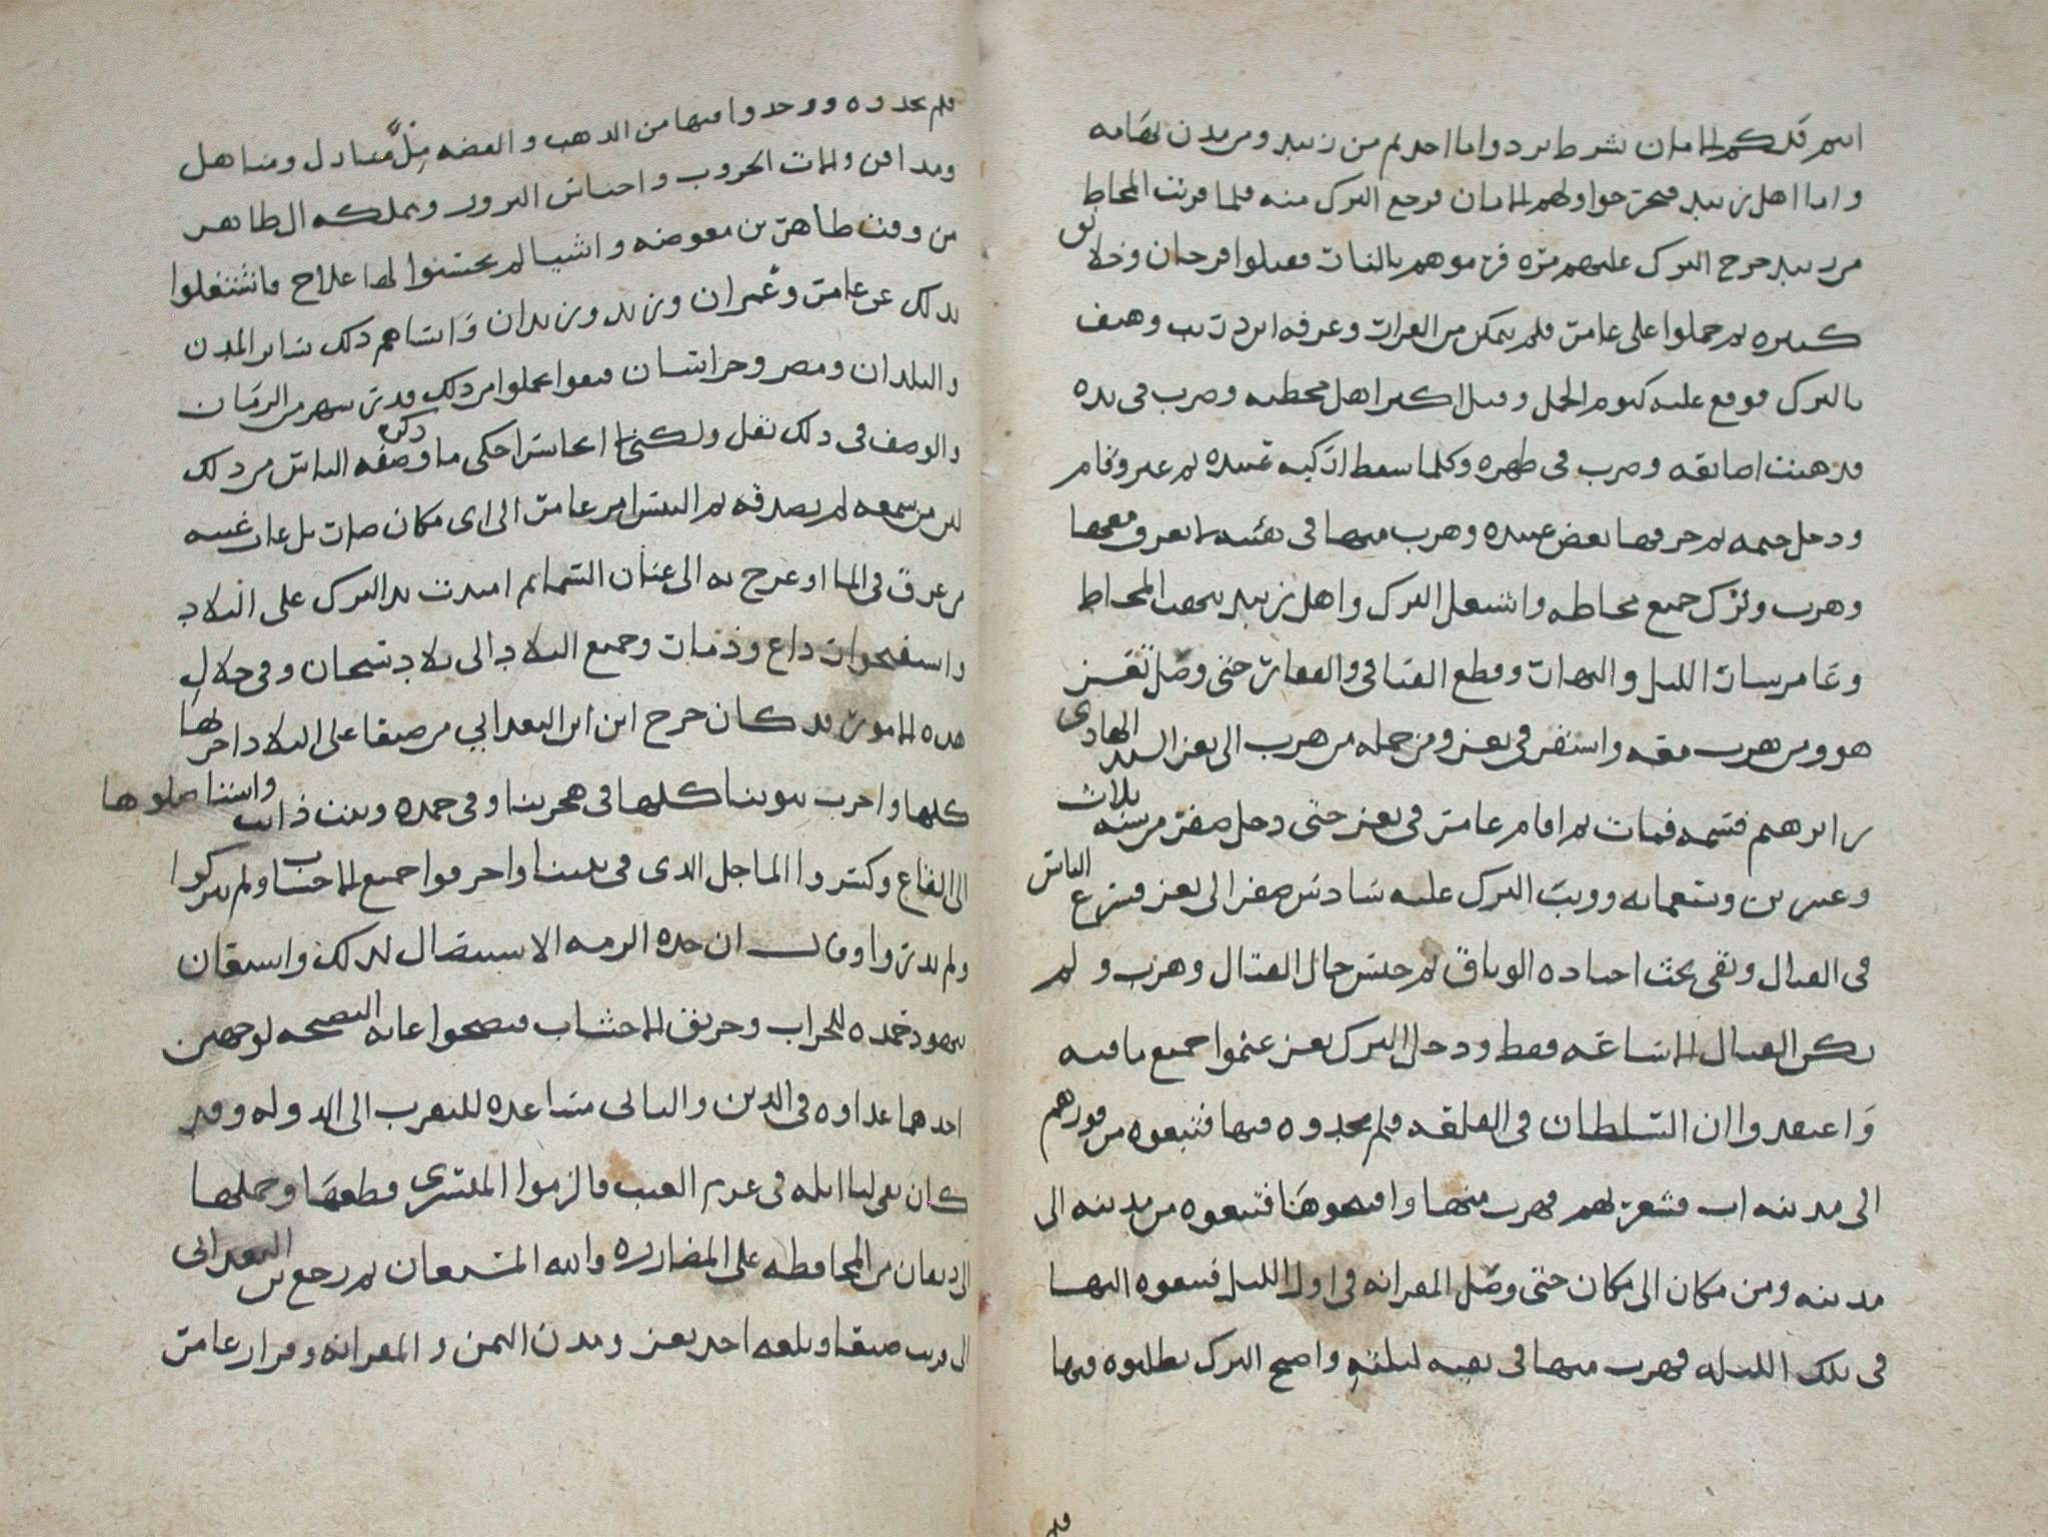 انتم فلكم الامان بشرط تردوا ما اخذتم من زبيد ومن مدن تهامه
واما اهل زبيد فنخرجوا ولهم الامان فرجع الترك منه فلما قربت المحاط
من زبيد خرج الترك عليهم مره فرموهم بالنار فقتلوا فرحان وخلائق
كثيره ثم حملوا على عامر فلم يتمكن من الفرار وعرفه وهتف
بالترك فوقع عليه كيوم الجمل وقتل اكثر اهل محطته وضرب في يده
فذهبت اصابعه وضرب في ظهره وكلما سقط اركبه عبيده ثم عبر وقام
ودخل خيمه ثم خرقها بعض عبيده وهرب منها في هيئه لا يعرف معها
وهرب وترك جميع محاطه واشتغل الترك واهل زبيد بنهب المحاط
وعامر سار الليل والنهار وقطع الفيافي والقفار حتى وصل تعز
هو ومن هرب معه واستقر في تعز ومن جمله من هرب الى تعز السيد الهادي
بن ابراهيم فسمه فمات ثم اقام عامر في تعز حتى دخل صفر من سنه ثلاث
وعشرين وتسعمايه ووثب الترك عليه سادس صفر الى تعز فشرع الناس
في القتال وبقي تحت اجناده الوطاق ثم حبس حال القتال وهرب ولم
يكن القتال الا ساعه فقط ودخل الترك تعز غنموا جميع ما فيه
واعتقدوا ان السلطان في القلعه فلم يجدوه فيها فتبعوه من فورهم
الى مدينه اب فشعر بهم فهرب منها وافتتحوها فتبعوه من مدينه الى
مدينه ومن مكان الى مكان حتى وصل المقرانه في اول الليل فتبعوه اليها
في تلك الليله فهرب منها في بقيه ليلته واصبح الترك يطلبوه فيها
فلم يجدوه ووجدوا فيها من الذهب والفضه مل منادل ومناهل
ومدافن والات الحروب واجناس البرود وتملكه ال طاهر
من وقت طاهر بن معوضه واشيا لم يحسنوا لها علاج فاشتغلوا
بذلك عن عامر وعمران وزيد وزيدان وانساهم ذلك ساير المدن
والبلدان ومصر وخراسان فبقوا يحملوا من ذلك قدر شهر من الزمان
والوصف في ذلك ثقل ولكن انما احكي ما وصفه ذكره الناس من ذلك
لكن من سمعه لم يصدقه ثم التبس امر عامر الى اي مكان صار بل غار غيبه
من غرق في الما او عرج به الى عنان السما ثم امتدت يد الترك على البلاد
واستفتحوا رداع وذمار وجميع البلاد الى بلاد سنحان وفي خلال
هذه الامور قد كان خرج ابن البعداني من صنعا على البلاد اخربها
كلها واخرب بيوتنا كلها في هجرتنا وفي حمده وبيت ذانب واستاصلوها
الى القاع وكسروا الماجل الذي في بيتنا واحرقوا جميع الاخشاب ولم يتركوا
ولم يذروا وقال ان حده الزمه الاستيصال لذلك واستعان
بيهود حمده للخراب وحريق الاخشاب فنصحوا غايه النصيحه لوجهين
احدهما عداوه في الدين والثاني مساعده للتقرب الى الدوله وقد
كان بقي لنا اثله في غرم العنب فالزموا المشتري قطعها وحملها
الى ريعان من المحافظه على المضارره والله المستعان ثم رجع بن البعداني
الى قريب صنعا وبلغه اخذ تعز ومدن اليمن والمقرانه وفرار عامر
فلم